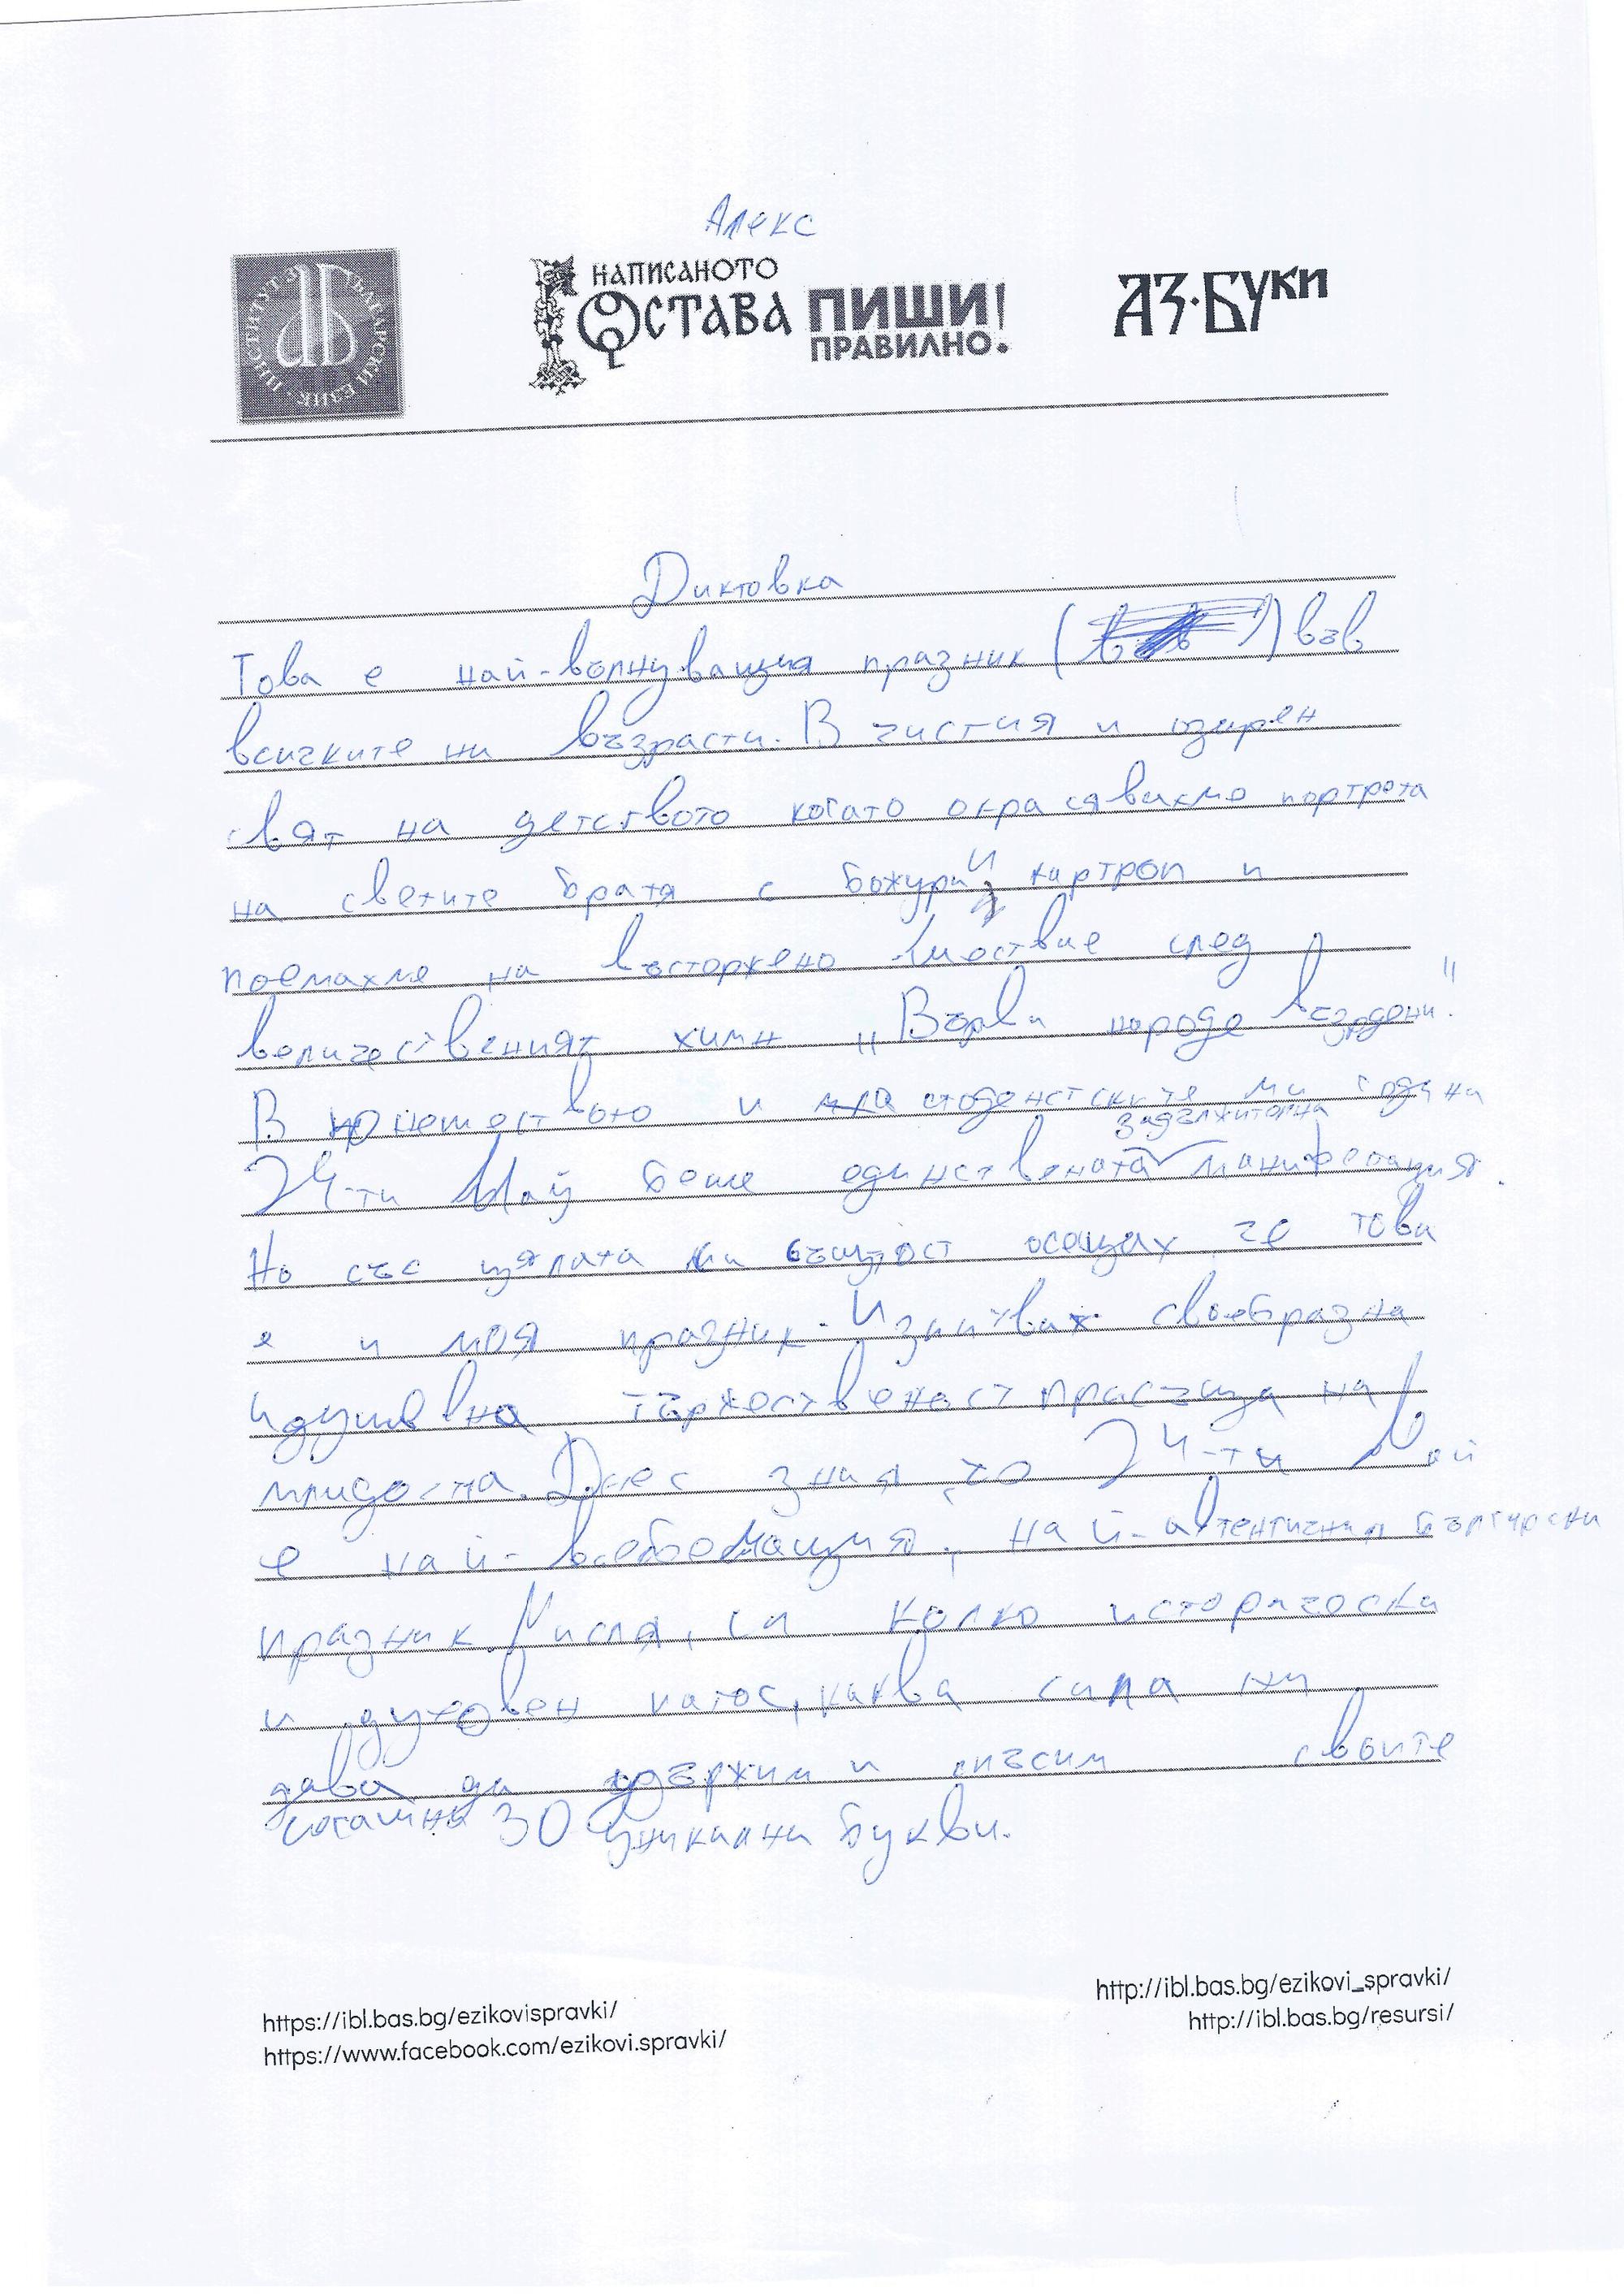 Алекс
ИНСТИТУТ ЗА БЪЛГАРСКИ ЕЗИК
НАПИСАНОТО
ОСТАВА ПИШИ!
ПРАВИЛНО.
АЗ·БУКИ
Диктовка
Това е най-вълнуващия празник във
всичките ни възрасти. В чистия и озарен
свят на детството когато окрасявахме портрета
на светите братя с божури и картроп и
поемахме на възторжено шествие след
величественият химн „Върви народе възрдени"
В юнешеството и студенстските ми години
24-ти Май беше единствената задължителна манифетация.
Но със цялата ми същност осещах, че това
е и моя празник. Изпитвах своебразна
и душевна тържественаст присъща на
младостта. Днес зная че 24-ти Май
е най-всебемащия, най-автентичния български
празник. Мисля, си колко историческа
и духовен патос, каква сила ни
дава да удържим и впасим своите
сегашни 30 уникални букви.
https://ibl.bas.bg/ezikovispravki/
https://www.facebook.com/ezikovi.spravki/
http://ibl.bas.bg/ezikovi_spravki/
http://ibl.bas.bg/resursi/